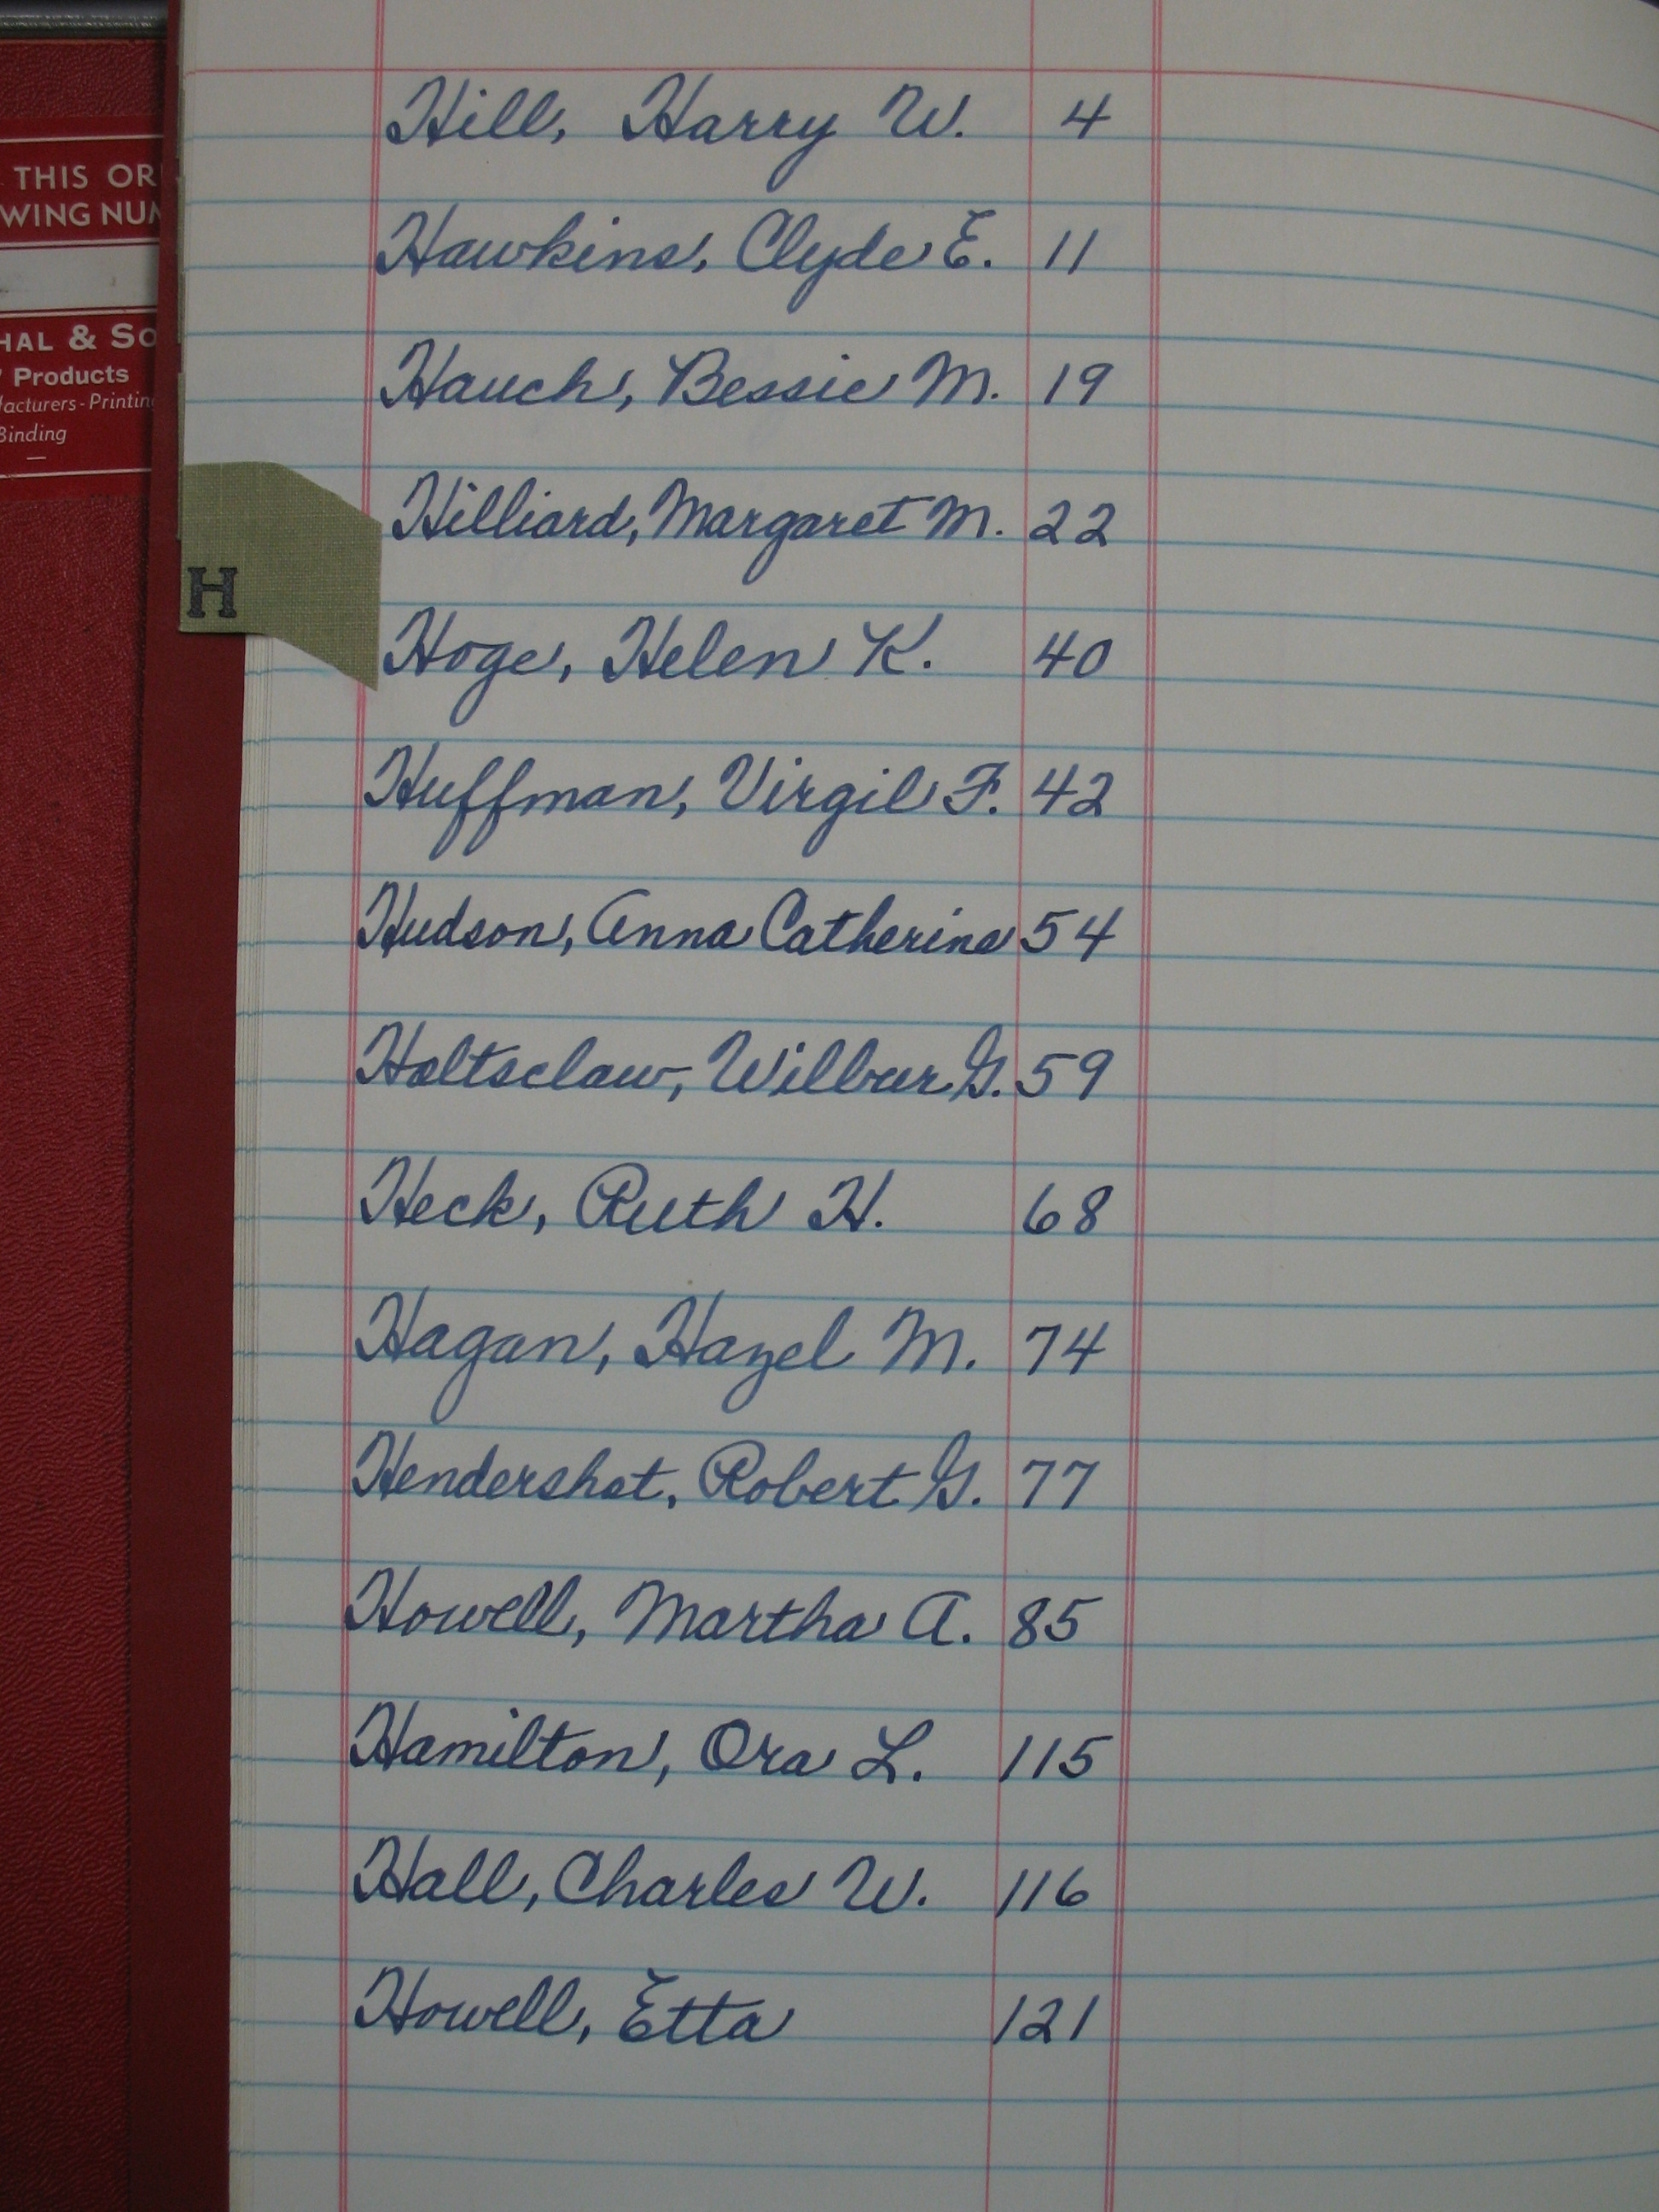 THIS OR
WING NUM
HAL & SO
Products
facturers - Printing
Binding
H
Hill, Harry W. 4
Hawkins, Clyde E. 11
Hauch, Bessie M. 19
Hilliard, Margaret M. 22
Hoge, Helen K. 40
Huffman, Virgil F. 42
Hudson, Anna Catherine 54
Holtsclaw, Wilbur G. 59
Heck, Ruth H. 68
Hagan, Hazel M. 74
Hendershot, Robert G. 77
Howell, Martha A. 85
Hamilton, Ora L. 115
Hall, Charles W. 116
Howell, Etta 121